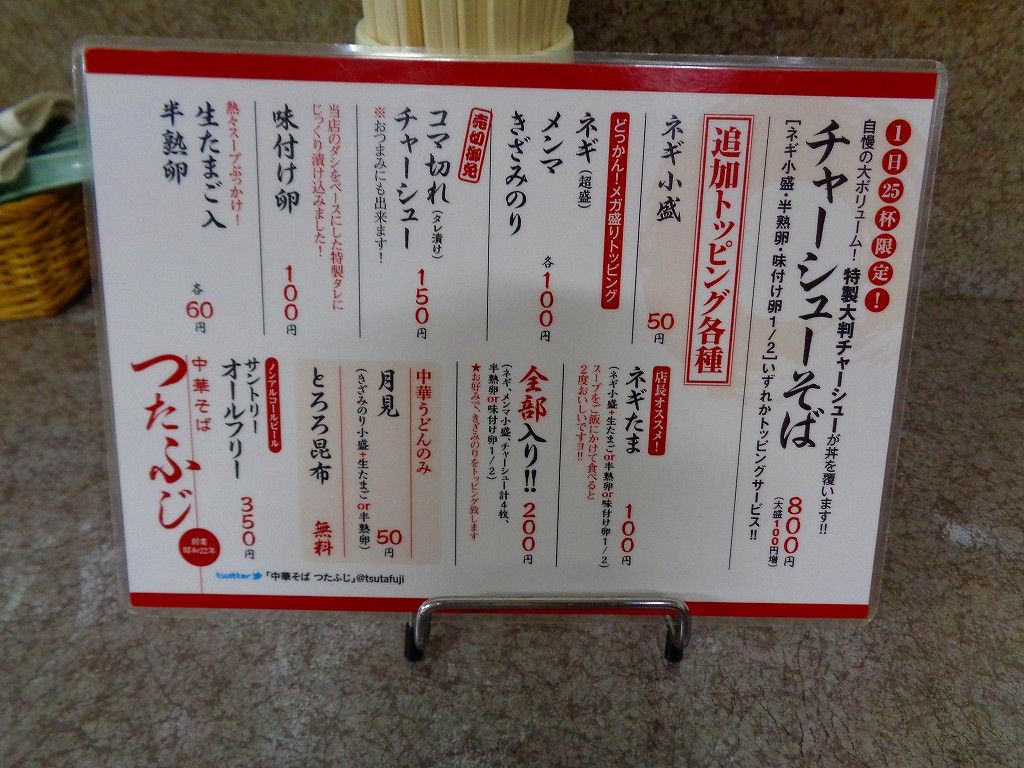 1日25杯限定!
自慢の大ボリューム!特製大判チャーシューが丼を覆います!!
チャーシューそば 800円
(大盛100円増)
[ネギ小盛・半熟卵・味付け卵1/2]いずれかトッピングサービス!!
追加トッピング各種
ネギ小盛 50円
どっかんーメガ盛りトッピング
ネギ(超盛)
メンマ
きざみのり
各100円
売切御免
コマ切れ(タレ漬け)
チャーシュー 150円
※おつまみにも出来ます!
当店のダシをベースにした特製タレに
じっくり漬け込みました!
味付け卵 100円
熱々スープぶっかけ!
生たまご入
半熟卵
各60円
店長オススメ!
ネギたま 100円
(ネギ小盛+生たまごor半熟卵or味付け卵1/2)
スープをご飯にかけて食べると
2度おいしいですヨ!!
全部入り!! 200円
(ネギ、メンマ小盛、チャーシュー計4枚、
半熟卵or味付け卵1/2)
★お好みで、きざみのりをトッピング致します
中華うどんのみ
月見 50円
(きざみのり小盛+生たまごor半熟卵)
とろろ昆布 無料
ノンアルコールビール
サントリー
オールフリー 350円
中華そば
つたふじ
創業
昭和22年
twitter「中華そば つたふじ」@tsutafuji